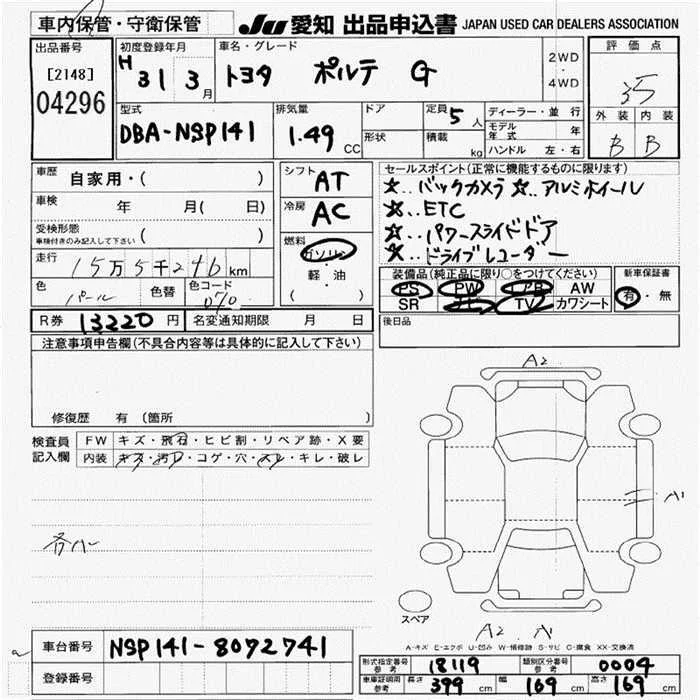 車内保管・守衛保管
JU 愛知 出品申込書 JAPAN USED CAR DEALERS ASSOCIATION
出品番号
[2148]
04296
初度登録年月
H 31 3月
車名・グレード
トヨタ ポルテ G
2WD
・
4WD
評価点
3.5
外装 内装
B B
型式
DBA-NSP141
排気量
1.49 CC
ドア
形状
定員 5人
積載 kg
ディーラー・並行
モデル年式 年
ハンドル 左・右
車歴 自家用・( )
車検 年 月( 日)
受検形態
車検付きのみ記入して下さい ( )
走行 15万5千246km
色 パール 色替 色コード 070
シフト AT
冷房 AC
燃料
ガソリン
・
軽・油
( )
セールスポイント(正常に機能するものに限ります)
☆..バックカメラ ☆..アルミホイール
☆..ETC
☆..パワースライドドア
☆..ドライブレコーダー
装備品(純正品に限り○をつけてください)
PS PW AB AW
SR TV カワシート
新車保証書
有・無
R券 13220円 名変通知期限 月 日
後日品
注意事項申告欄(不具合内容等は具体的に記入して下さい)
修復歴 有 (箇所 )
検査員記入欄
FW キズ・飛石・ヒビ割・リペア跡・X要
内装 キズ・汚レ・コゲ・穴・スレ・キレ・破レ
A2
スペア
A2
A-キズ E-エクボ U-凹み W-補修跡 S-サビ C-腐食 XX-交換済
車台番号 NSP141-8072741
登録番号
形式指定番号 参考 18119 類別区分番号 参考 0004
車庫証明用 参考 長さ 399 cm 幅 169 cm 高さ 169 cm